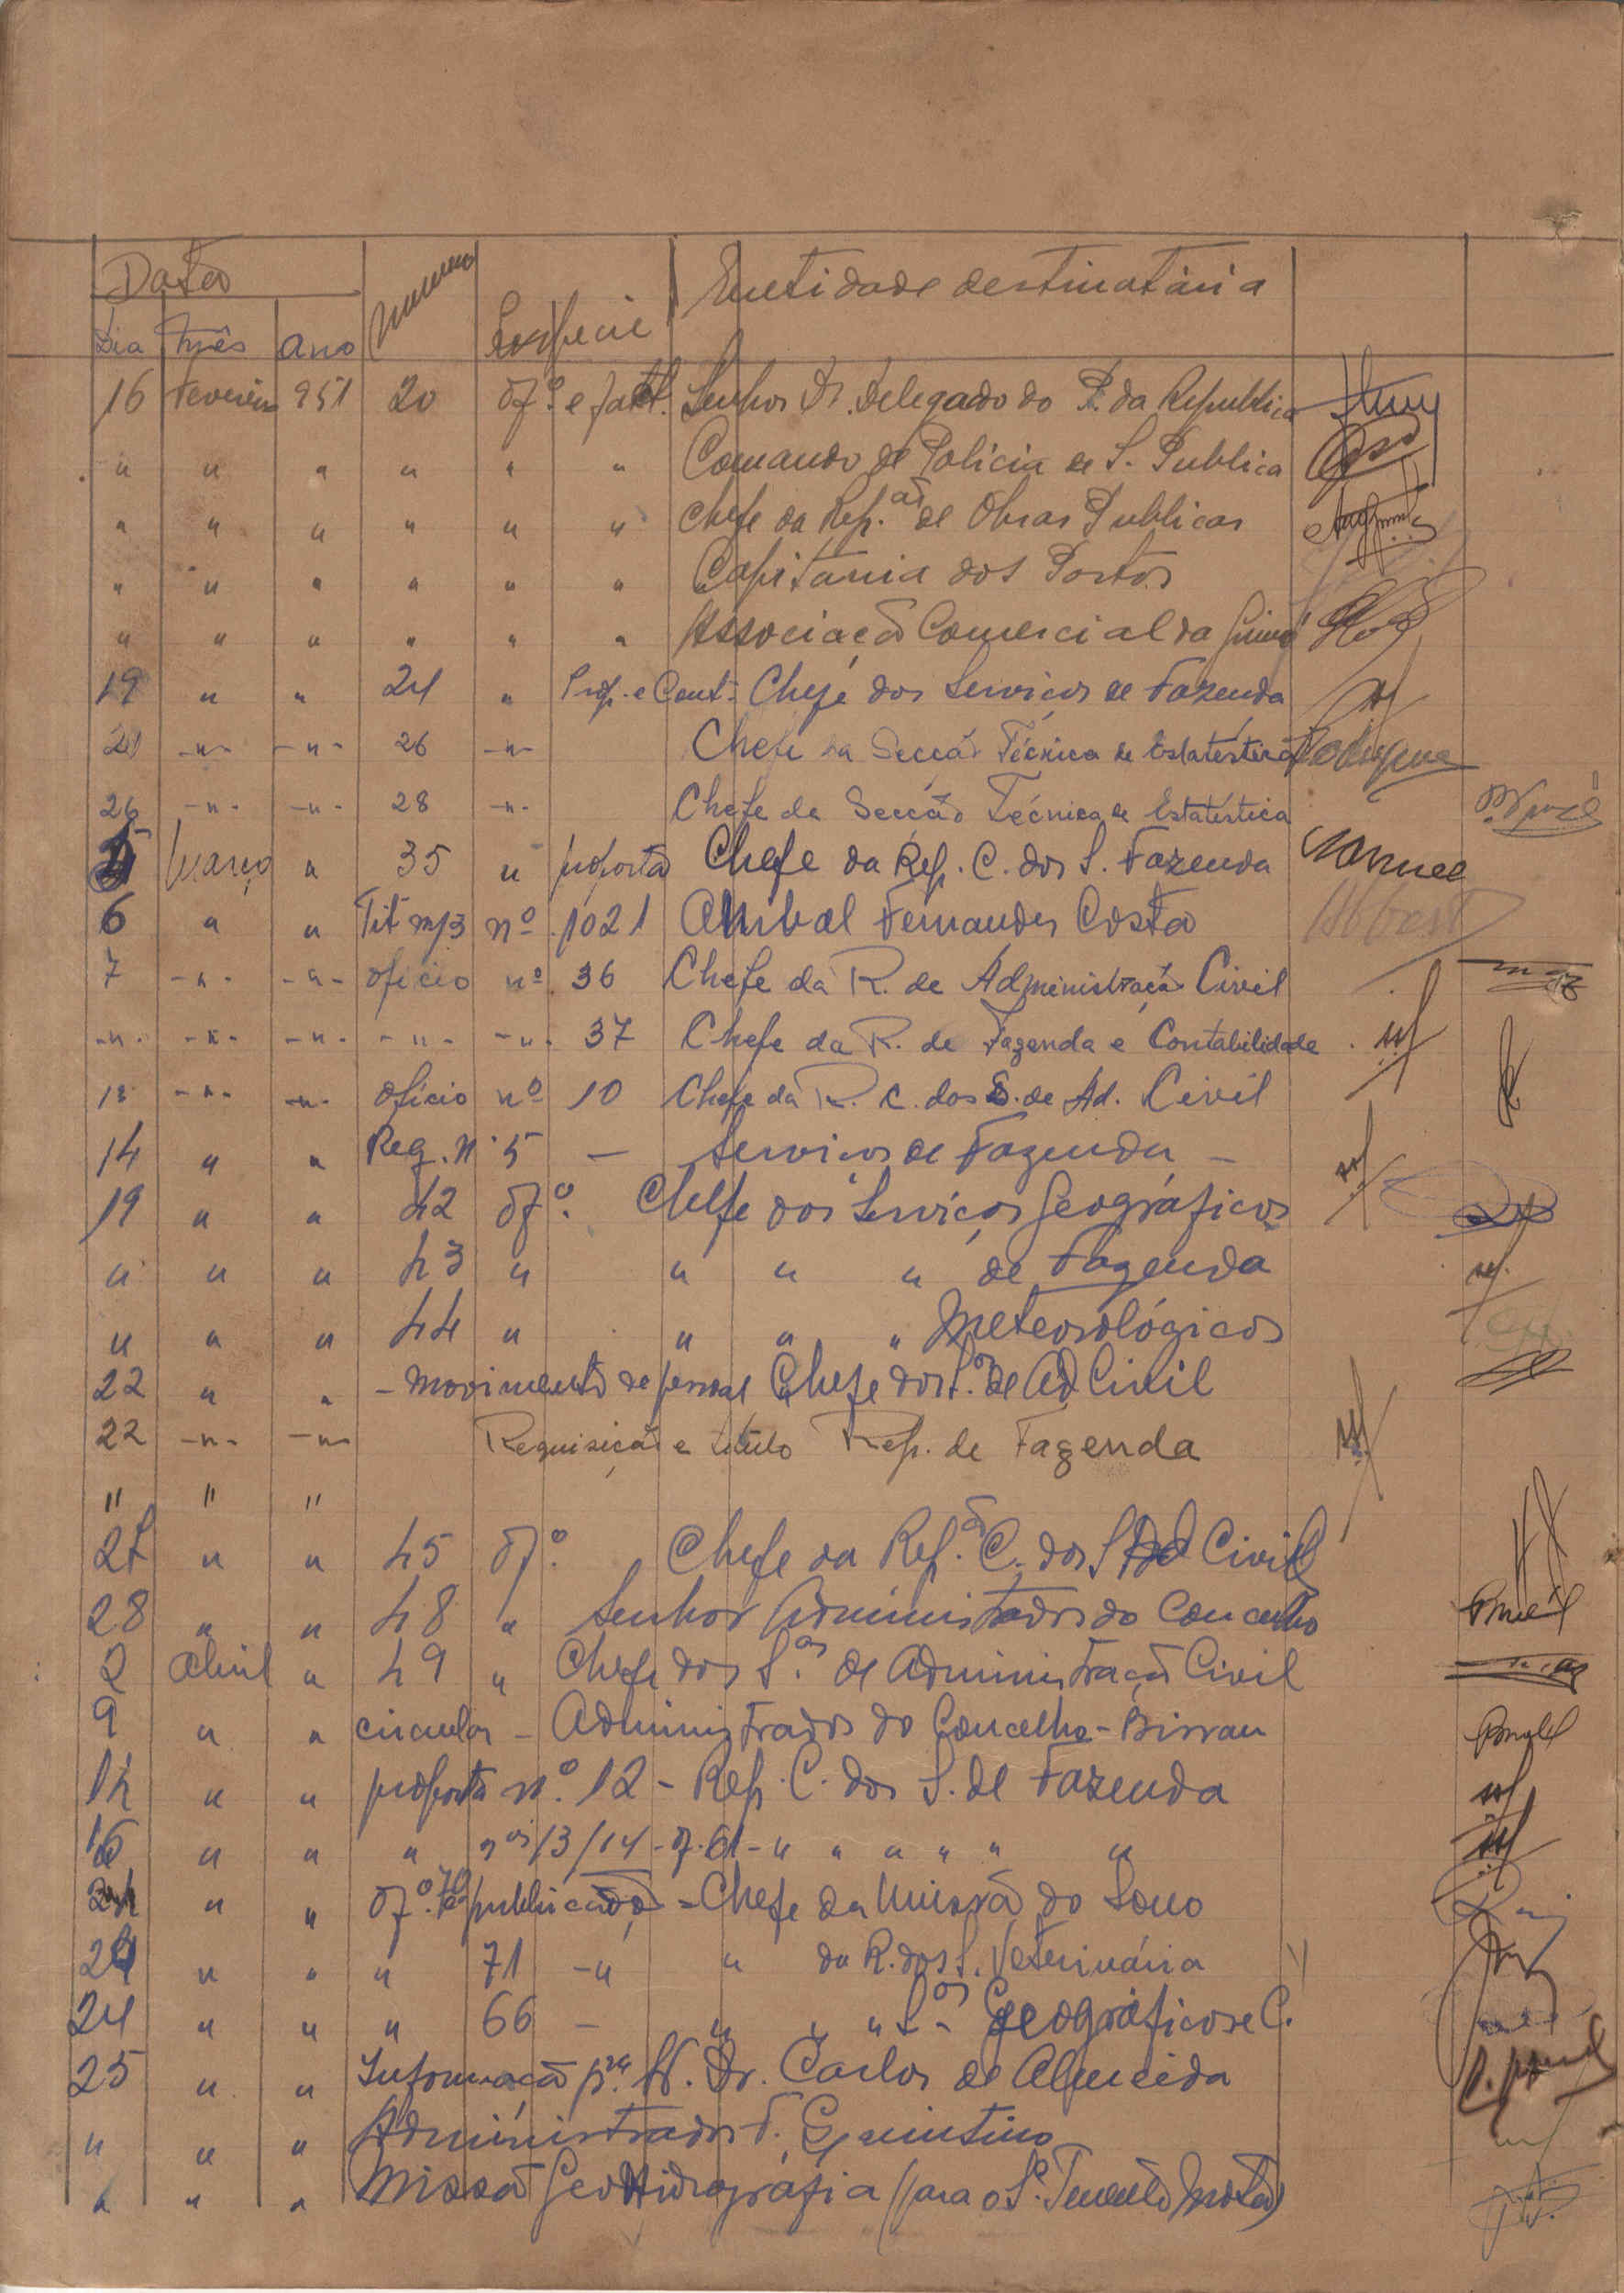 Data Numero Espécie Entidade destinatária
Dia Mês Ano
16 Fevereiro 951 20 Of.º e fact. Senhor Dr. Delegado do P. da Republica
" " " " " " Comando de Policia de S. Publica
" " " " " " Chefe da Rep.ão de Obras Publicas
" " " " " " Capitania dos Portos
" " " " " " Associação Comercial da Guiné
19 " " 24 " Prop. e Cont. Chefe dos Serviços de Fazenda
21 -"- -"- 26 -"- Chefe da Secção Técnica de Estatística
26 -"- -"- 28 -"- Chefe da Secção Técnica de Estatística
5 Março " 35 " proposta Chefe da Rep. C. dos S. Fazenda Manuel
6 " " Tit. mp3 nº 1021 Anibal Fernandes Costa
7 -"- -"- oficio nº 36 Chefe da R. de Administração Civil
-"- -"- -"- -"- -"- 37 Chefe da R. de Fazenda e Contabilidade
13 -"- -"- Oficio nº 10 Chefe da R. C. dos S. de Ad. Civil
14 " " Req. n. 5 — Serviços de Fazenda —
19 " " 42 Of.º Chefe dos Serviços Geográficos
" " " 43 " " " " de Fazenda
" " " 44 " " " " Meteorológicos
22 " " - Movimento de pessoal Chefe dos S.os de Ad Civil
22 -"- -"- Requisição e título Rep. de Fazenda
" " "
27 " " 45 Of.º Chefe da Rep.ão C. dos S Ad Civil
28 " " 48 " Senhor Administrador do Concelho
2 Abril " 49 " Chefe dos S.os de Administração Civil
9 " " circular - Administrador do Concelho - Bissau
14 " " proposta n.º 12 - Rep. C. dos S. de Fazenda
16 " " " nos 13/14 - of. 61 - " " " " " "
24 " " Of.º 70 publicação - Chefe da Missão do Sono
24 " " " 71 -" " da R. dos S. Veterinária
24 " " " 66 - " " " S.os Geográficos e C.
25 " " Informação p.ra Sr. Dr. Carlos de Almeida
" " " Administrador F. Quintino
" " " Missão Geohidrográfia (para o S. Tenente Mota)